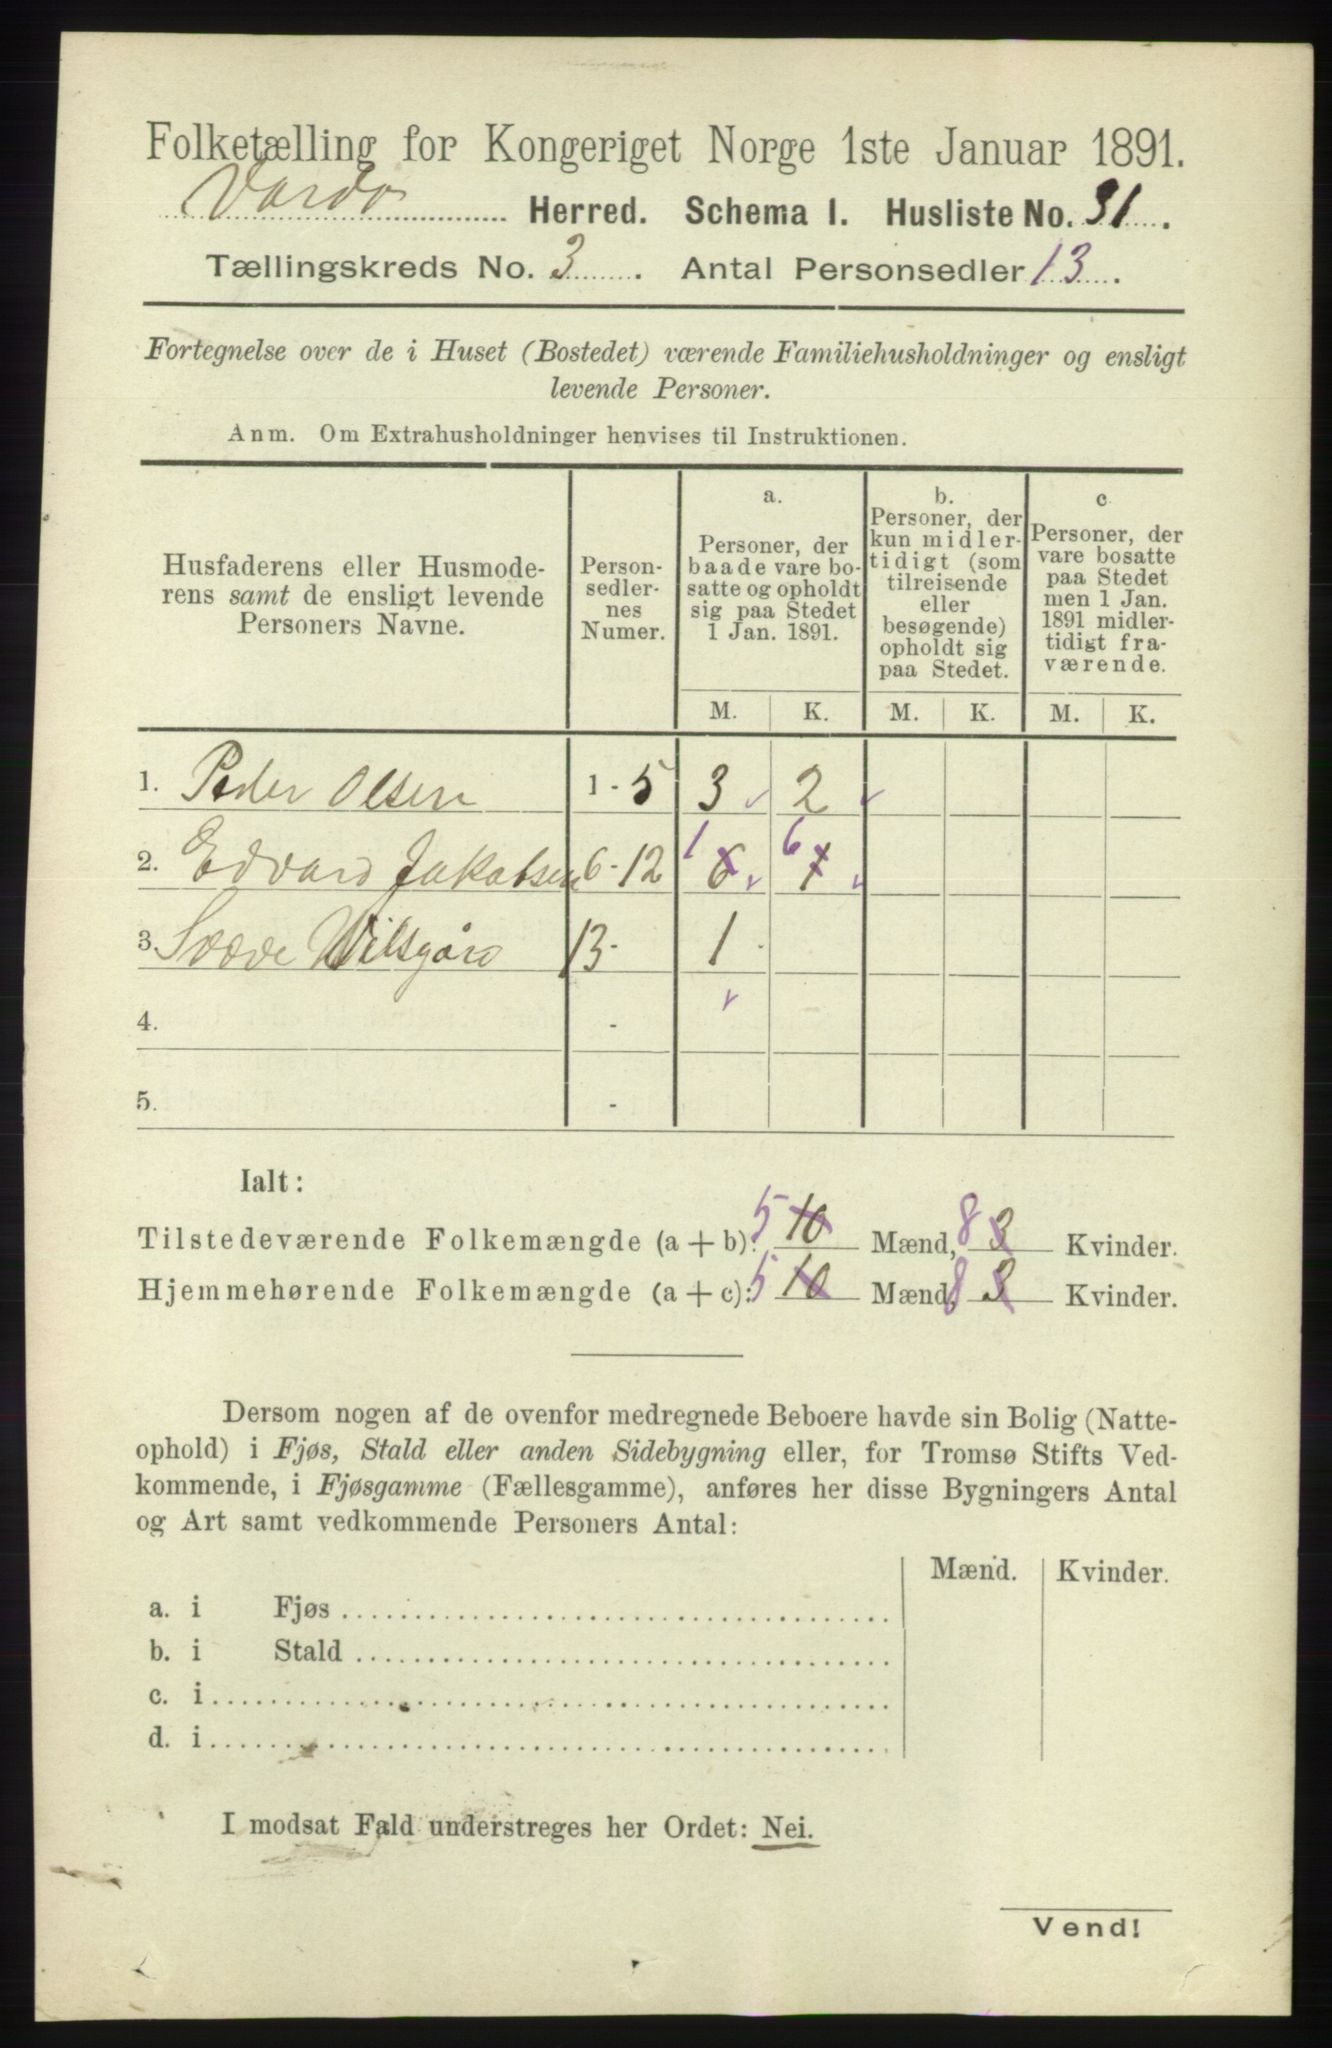 Folketælling for Kongeriget Norge 1ste Januar 1891.
Vardø Herred. Schema I. Husliste No. 31.
Tællingskreds No. 3. Antal Personsedler 13.
Fortegnelse over de i Huset (Bostedet) værende Familiehusholdninger og ensligt
levende Personer.
Anm. Om Extrahusholdninger henvises til Instruktionen.
Husfaderens eller Husmode-
rens samt de ensligt levende
Personers Navne.
Person-
sedler-
nes
Numer.
a.
Personer, der
baade vare bo-
satte og opholdt
sig paa Stedet
1 Jan. 1891.
b.
Personer, der
kun midler-
tidigt (som
tilreisende
eller
besøgende)
opholdt sig
paa Stedet.
c
Personer, der
vare bosatte
paa Stedet
men 1 Jan.
1891 midler-
tidigt fra-
værende.
M. K. M. K. M. K.
1. Peder Olsen 1 - 5 3 2
2. Edvard Jakobsen 6 - 12 1 6 6 1
3. Wilsgård 13 - 1
4. -
5. -
Ialt:
Tilstedeværende Folkemængde (a + b): 5 10 Mænd, 8 3 Kvinder.
Hjemmehørende Folkemængde (a + c): 5 10 Mænd, 8 3 Kvinder.
Dersom nogen af de ovenfor medregnede Beboere havde sin Bolig (Natte-
ophold) i Fjøs, Stald eller anden Sidebygning eller, for Tromsø Stifts Ved-
kommende, i Fjøsgamme (Fællesgamme), anføres her disse Bygningers Antal
og Art samt vedkommende Personers Antal:
Mænd. Kvinder.
a. i Fjøs
b. i Stald
c. i
d. i
I modsat Fald understreges her Ordet: Nei.
Vend!